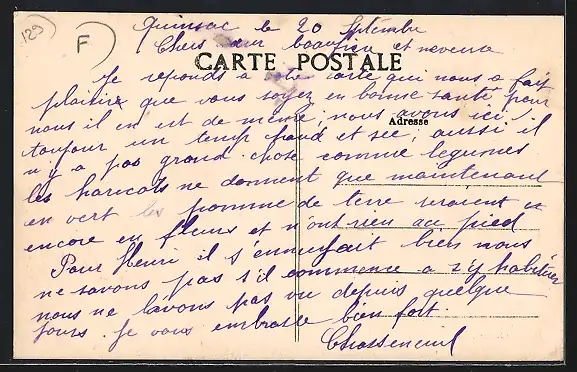 129
F
Quinsac le 20 Septembre
Chers sœur beaufrère et neveux
CARTE POSTALE
Je réponds a votre carte qui nous a fait
plaisire que vous soyez en bonne santé, pour
nous il en est de même, nous avons ici
Adresse
toujour un temp chaud et sec, aussi il
n'y a pas grand chose comme legumes
les haricots ne donnent que maintenant
en vert les pomme de terre seraient
encore en fleurs et n'ont rien au pied
Pour Henri il s'ennuyait bien nous
ne savons pas s'il commence a s'y habituer
nous ne lavons pas vu depuis quelque
jours. Je vous embrasse bien fort.
Chasseneuil